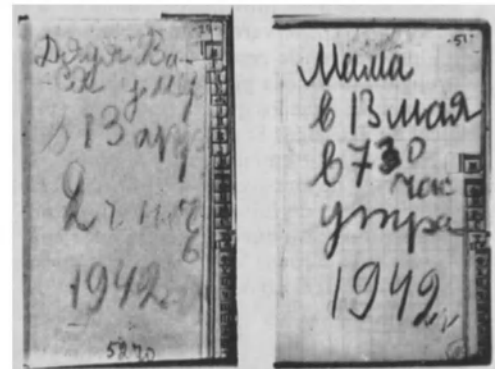 Дядя Ва-
ся умер
в 13 апр
2 ч ноч
ь
1942 г
5270
-51-
Мама
в 13 мая
в 7 30
час
утра
1942 г